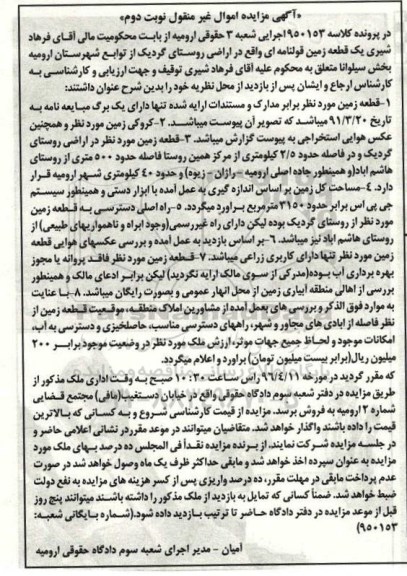 «آگهی مزایده اموال غیر منقول نوبت دوم»
در پرونده کلاسه ۹۵۰۱۵۳ اجرایی شعبه ۳ حقوقی ارومیه از بابت محکومیت مالی آقای فرهاد
شیری یک قطعه زمین قولنامه ای واقع در اراضی روستای گردیک از توابع شهرستان ارومیه
بخش سیلوانا متعلق به محکوم علیه آقای فرهاد شیری توقیف و جهت ارزیابی و کارشناسی به
کارشناس ارجاع و ایشان پس از بازدید از محل نظریه خود را بدین شرح عنوان داشتند:
۱-قطعه زمین مورد نظر برابر مدارک و مستندات ارایه شده تنها دارای یک برگ مبایعه نامه به
تاریخ ۹۱/۳/۲۰ میباشد که تصویر آن پیوست میباشد. ۲-کروکی زمین مورد نظر و همچنین
عکس هوایی استخراجی به پیوست گزارش میباشد. ۳-قطعه زمین مورد نظر در اراضی روستای
گردیک و در فاصله حدود ۲/۵ کیلومتری از مرکز همین روستا فاصله حدود ۵۰۰ متری از روستای
هاشم اباد(و همینطور جاده اصلی ارومیه -رازان - زیوه) و حدود ۴۰ کیلومتری شهر ارومیه قرار
دارد. ۴-مساحت کل زمین بر اساس اندازه گیری به عمل آمده با ابزار دستی و همینطور سیستم
جی پی اس برابر حدود ۳۱۵۰ مترمربع براورد میگردد. ۵-راه اصلی دسترسی به قطعه زمین
مورد نظر از روستای گردیک بوده لیکن دارای راه غیررسمی(وجود ابراه و ناهمواریهای طبیعی) از
روستای هاشم اباد نیز میباشد. ۶-بر اساس بازدید به عمل آمده و بررسی عکسهای هوایی قطعه
زمین مورد نظر تنها دارای کاربری زراعی میباشد. ۷-قطعه زمین مورد نظر فاقد پروانه یا مجوز
بهره برداری آب بوده(مدرکی از سوی مالک ارایه نگردید) لیکن برابر ادعای مالک و همینطور
بررسی از اهالی منطقه آبیاری زمین از محل انهار عمومی و بصورت رایگان میباشد. ۸-با عنایت
به موارد فوق الذکر و بررسی های بعمل آمده از مشاورین املاک منطقه، موقعیت قطعه زمین از
نظر فاصله از ابادی های مجاور و شهر، راههای دسترسی مناسب، حاصلخیزی و دسترسی به آب،
امکانات موجود و لحاظ جمیع جهات موثر، ارزش ملک مورد نظر در وضعیت موجود برابر ۲۰۰
میلیون ریال(برابر بیست میلیون تومان) براورد و اعلام میگردد.
که مقرر گردید در مورخه ۹۶/۴/۱۱ راس ساعت ۱۰:۳۰ صبح به وقت اداری ملک مذکور از
طریق مزایده در دفتر شعبه سوم دادگاه حقوقی واقع در خیابان دستغیب(مافی) مجتمع قضایی
شماره ۲ ارومیه به فروش برسد. مزایده از قیمت کارشناسی شروع و به کسانی که بالاترین
قیمت را داشته باشند واگذار خواهد شد. متقاضیان میتوانند در موعد مقرر در نشانی اعلامی حاضر و
در جلسه مزایده شرکت نمایند. از برنده مزایده نقداً فی المجلس ده درصد بهای ملک مورد
مزایده به عنوان سپرده اخذ خواهد شد و مابقی حداکثر ظرف یک ماه وصول خواهد شد در صورت
عدم پرداخت مابقی در مهلت مقرر، ده درصد واریزی پس از کسر هزینه های مزایده به نفع دولت
ضبط خواهد شد. ضمناً کسانی که تمایل به بازدید از ملک مذکور را داشته باشند میتوانند پنج روز
قبل از موعد مزایده در دفتر دادگاه حاضر تا ترتیب بازدید داده شود.(شماره بایگانی شعبه:
۹۵۰۱۵۳)
امیان - مدیر اجرای شعبه سوم دادگاه حقوقی ارومیه